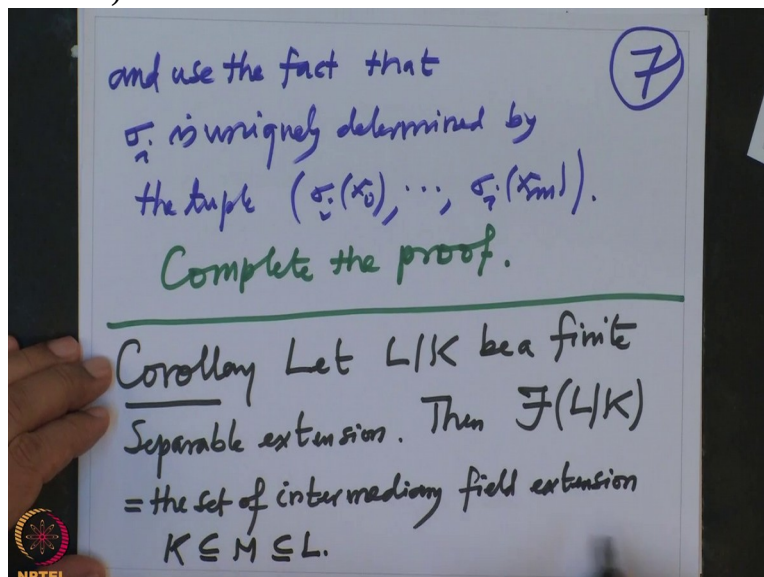 and use the fact that
7
σ_i is uniquely determined by
the tuple (σ_i(x_0), ..., σ_i(x_m)).
Complete the proof.
Corollary Let L|K be a finite
Separable extension. Then F(L|K)
= the set of intermediary field extension
K ⊆ M ⊆ L.
NPTEL